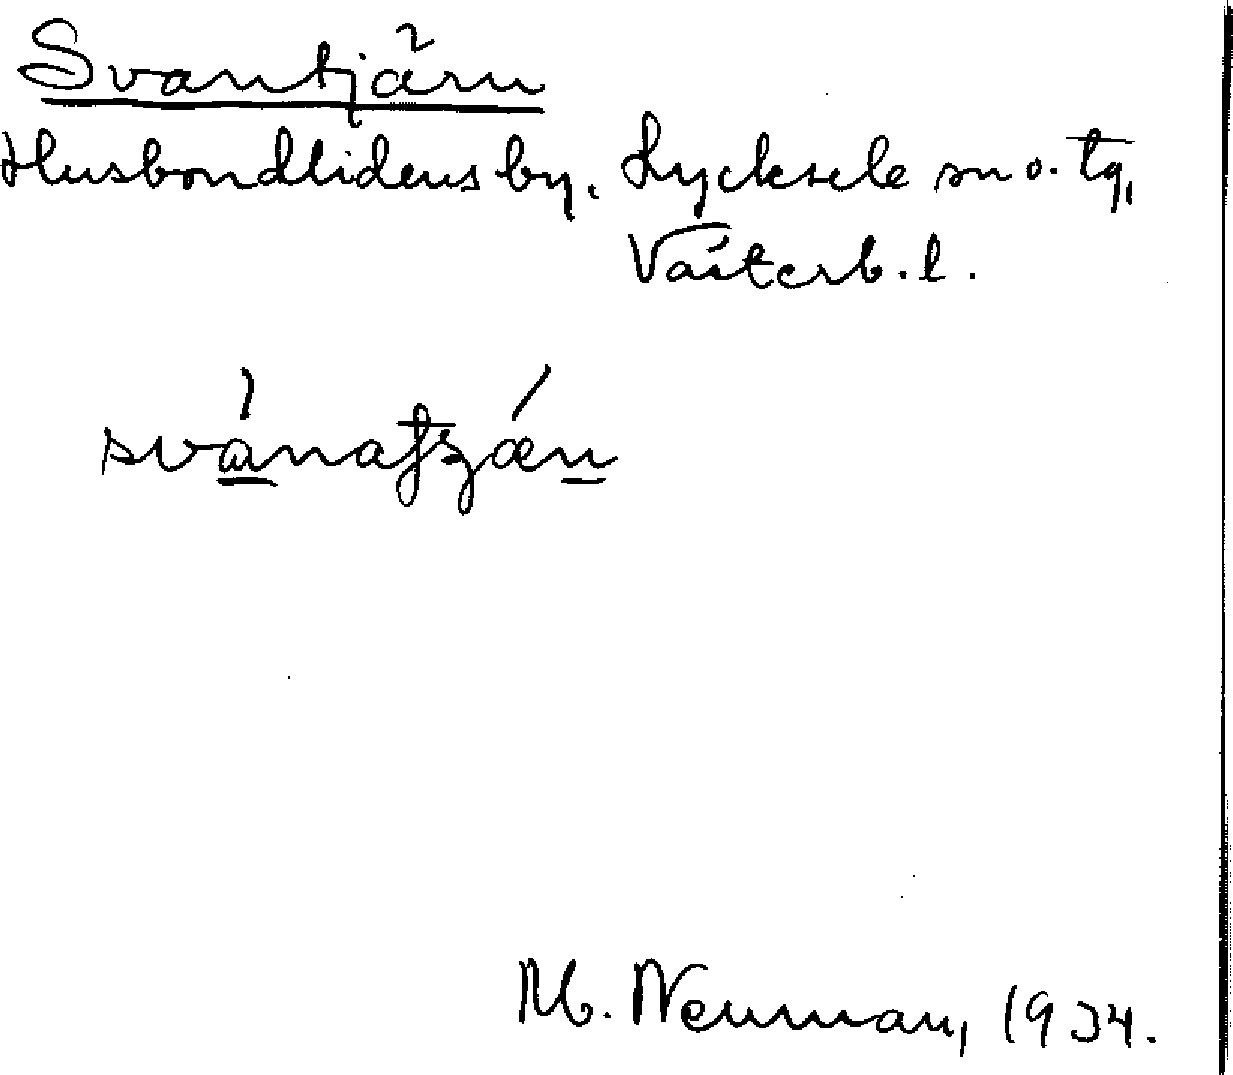 Svantjärn
Husbondlidens by. Lycksele sn o. tg,
Västerb. l.
M. Neuman, 1934.